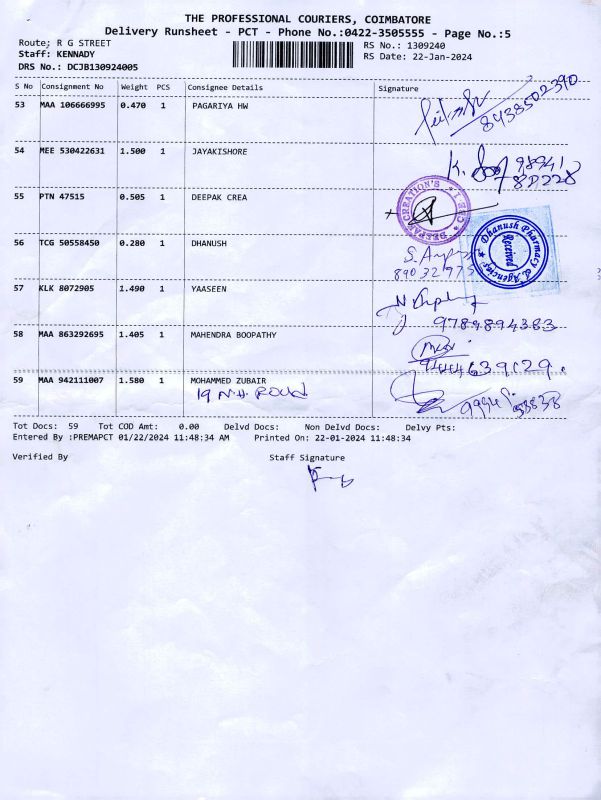 THE PROFESSIONAL COURIERS, COIMBATORE
Delivery Runsheet - PCT - Phone No.:0422-3505555 - Page No.:5
Route; R G STREET
Staff: KENNADY
DRS No.: DCJB130924005
RS No.: 1309240
RS Date: 22-Jan-2024
S No Consignment No Weight PCS Consignee Details Signature
53 MAA 106666995 0.470 1 PAGARIYA HW
8438502390
54 MEE 530422631 1.500 1 JAYAKISHORE
K.
55 PTN 47515 0.505 1 DEEPAK CREA
56 TCG 50558450 0.280 1 DHANUSH
Dhanush Pharmacy & Agencies
Received
57 KLK 8072905 1.490 1 YAASEEN
9789894383
58 MAA 863292695 1.405 1 MAHENDRA BOOPATHY
59 MAA 942111007 1.580 1 MOHAMMED ZUBAIR
19 N.H. ROAD
Tot Docs: 59 Tot COD Amt: 0.00 Delvd Docs: Non Delvd Docs: Delvy Pts:
Entered By :PREMAPCT 01/22/2024 11:48:34 AM Printed On: 22-01-2024 11:48:34
Verified By Staff Signature